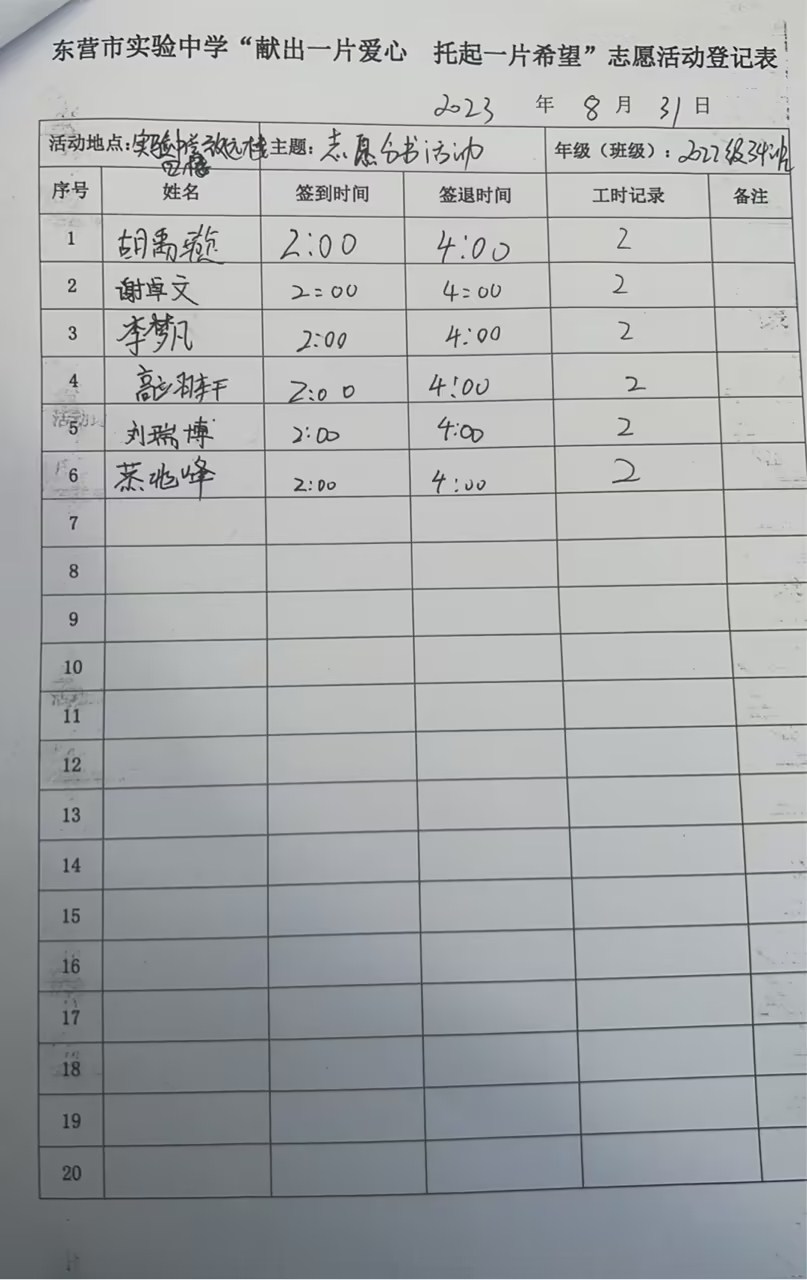 东营市实验中学“献出一片爱心 托起一片希望”志愿活动登记表
2023 年 8 月 31 日
活动地点:实验中学致远楼四楼 主题:志愿分书活动 年级(班级):2022级34班
序号 姓名 签到时间 签退时间 工时记录 备注
1 胡禹 2:00 4:00 2
2 谢卓文 2:00 4:00 2
3 李梦凡 2:00 4:00 2
4 高 2:00 4:00 2
5 刘瑞博 2:00 4:00 2
6 兆峰 2:00 4:00 2
7
8
9
10
11
12
13
14
15
16
17
18
19
20